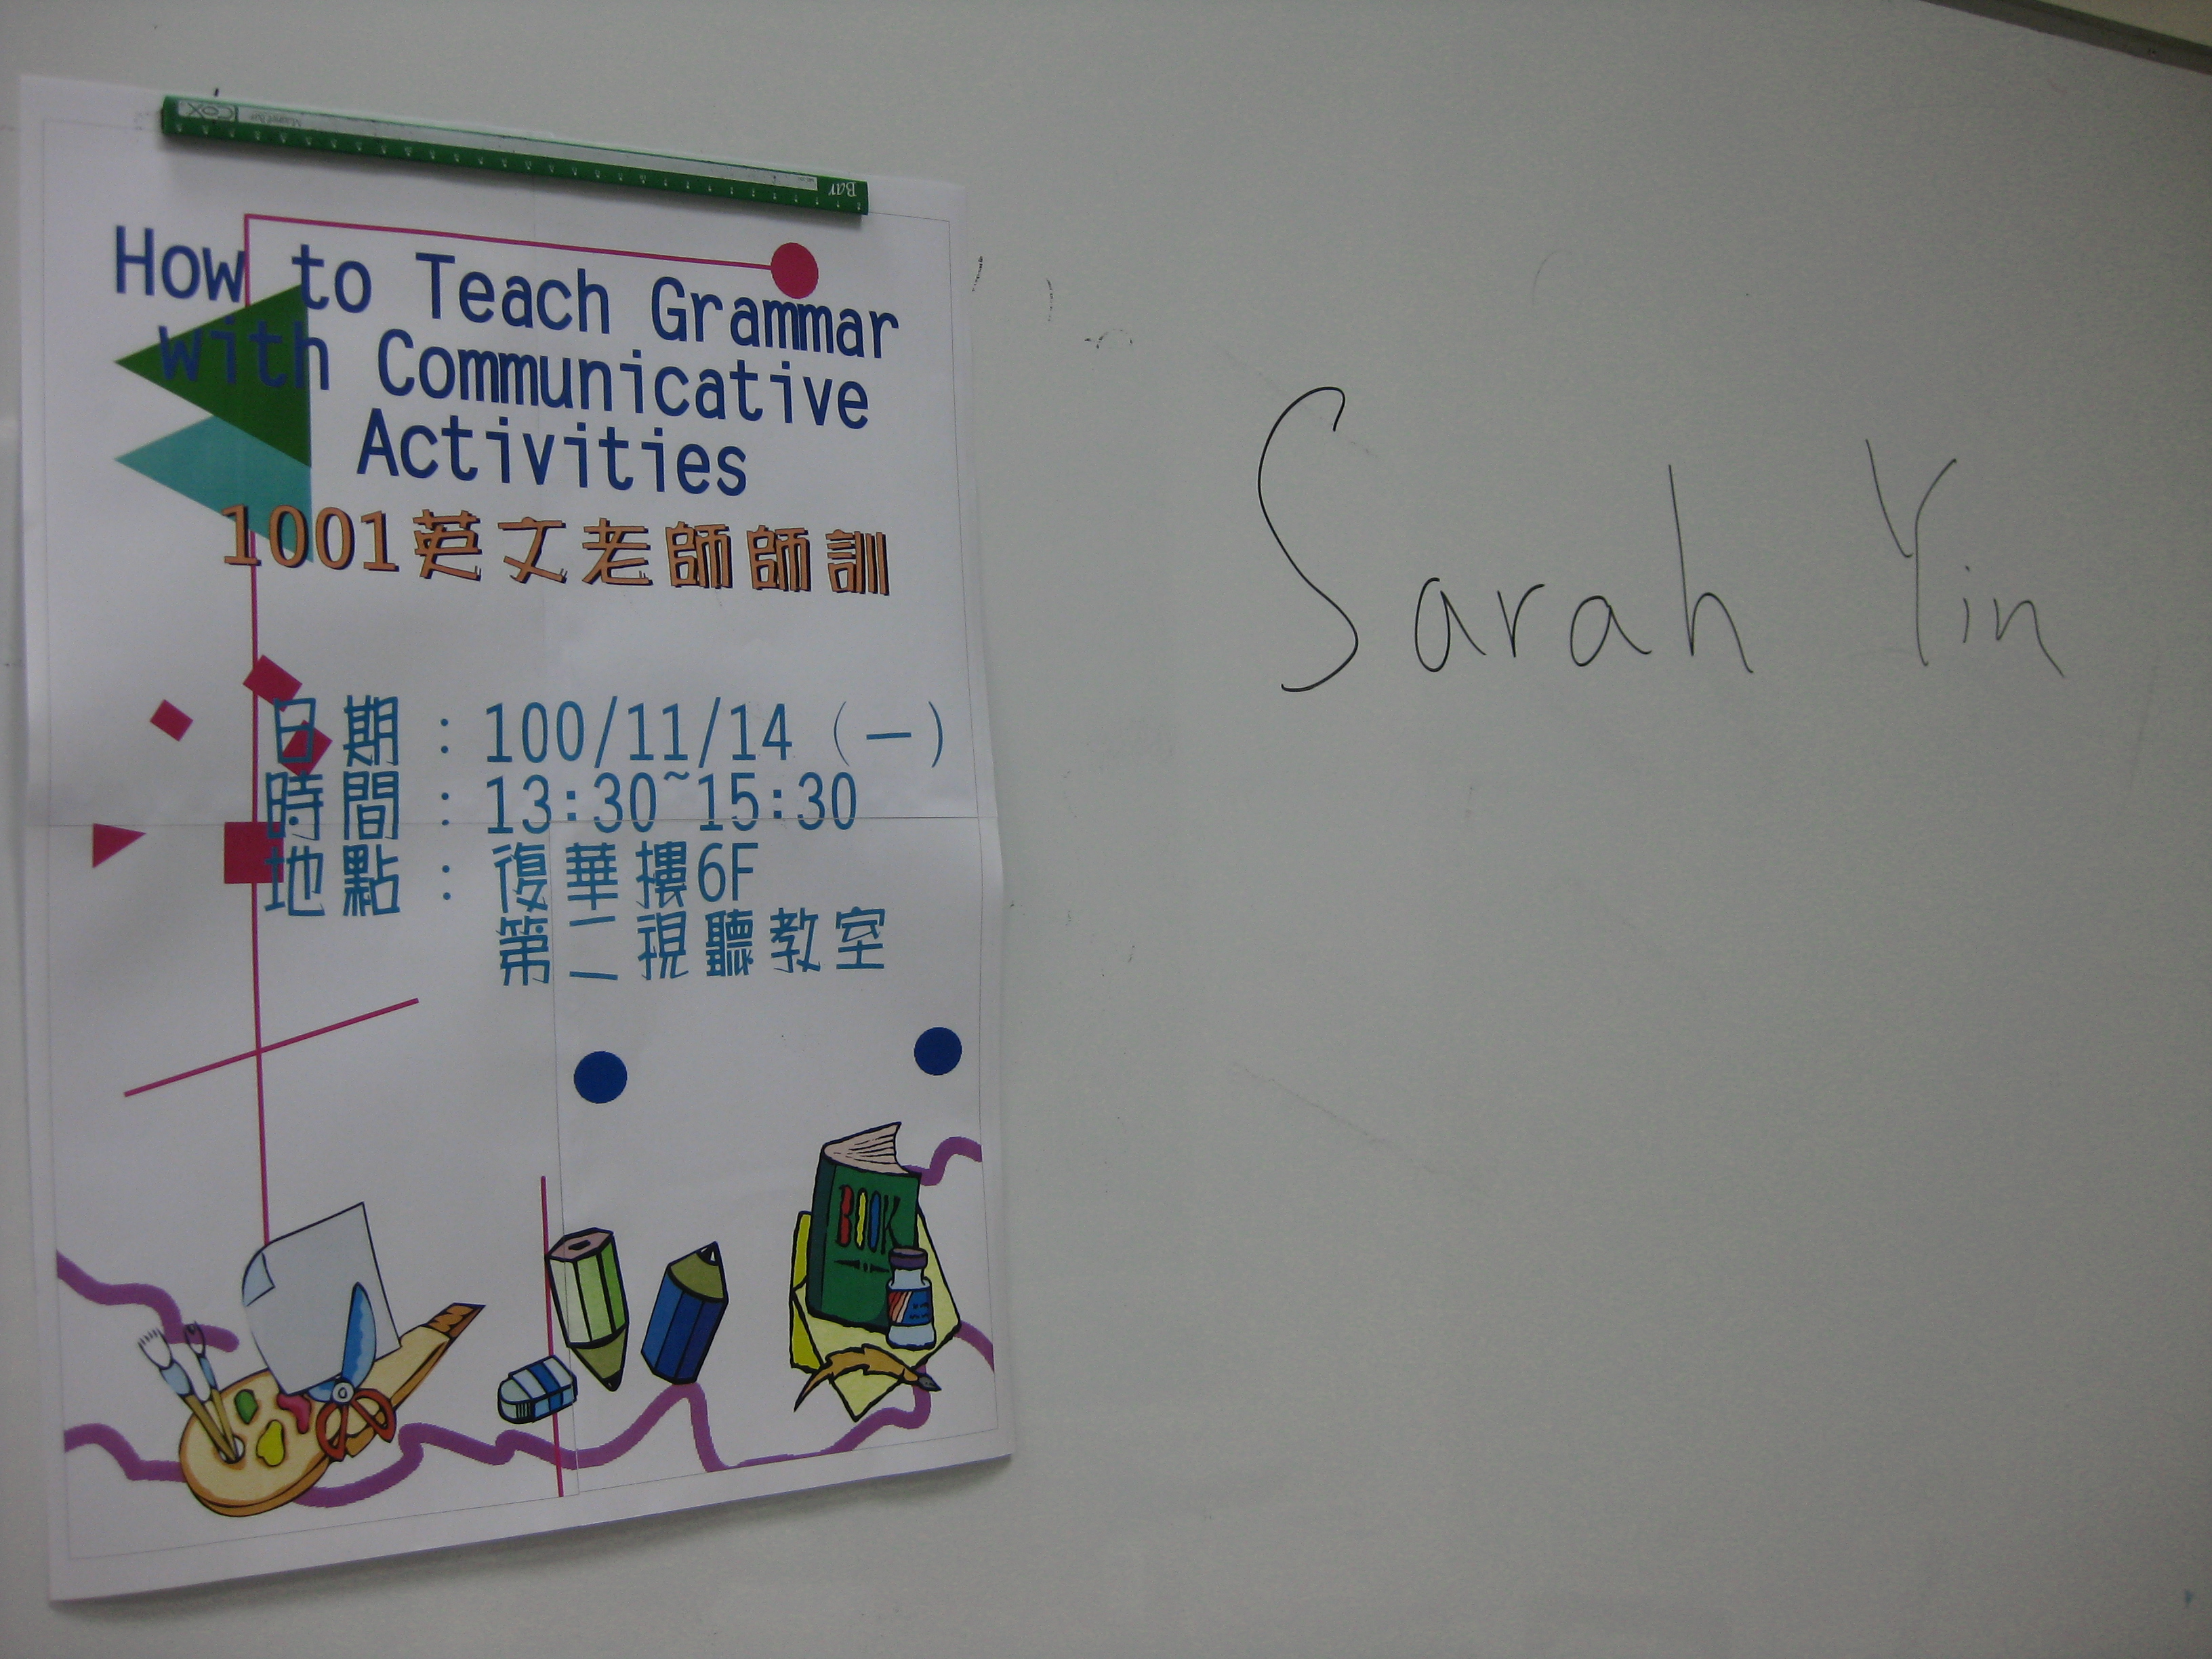 COX
Bar
How to Teach Grammar
with Communicative
Activities
1001英文老師師訓
日期：100/11/14（一）
時間：13:30~15:30
地點：復華摟6F
第二視聽教室
BOOK
Sarah Yin